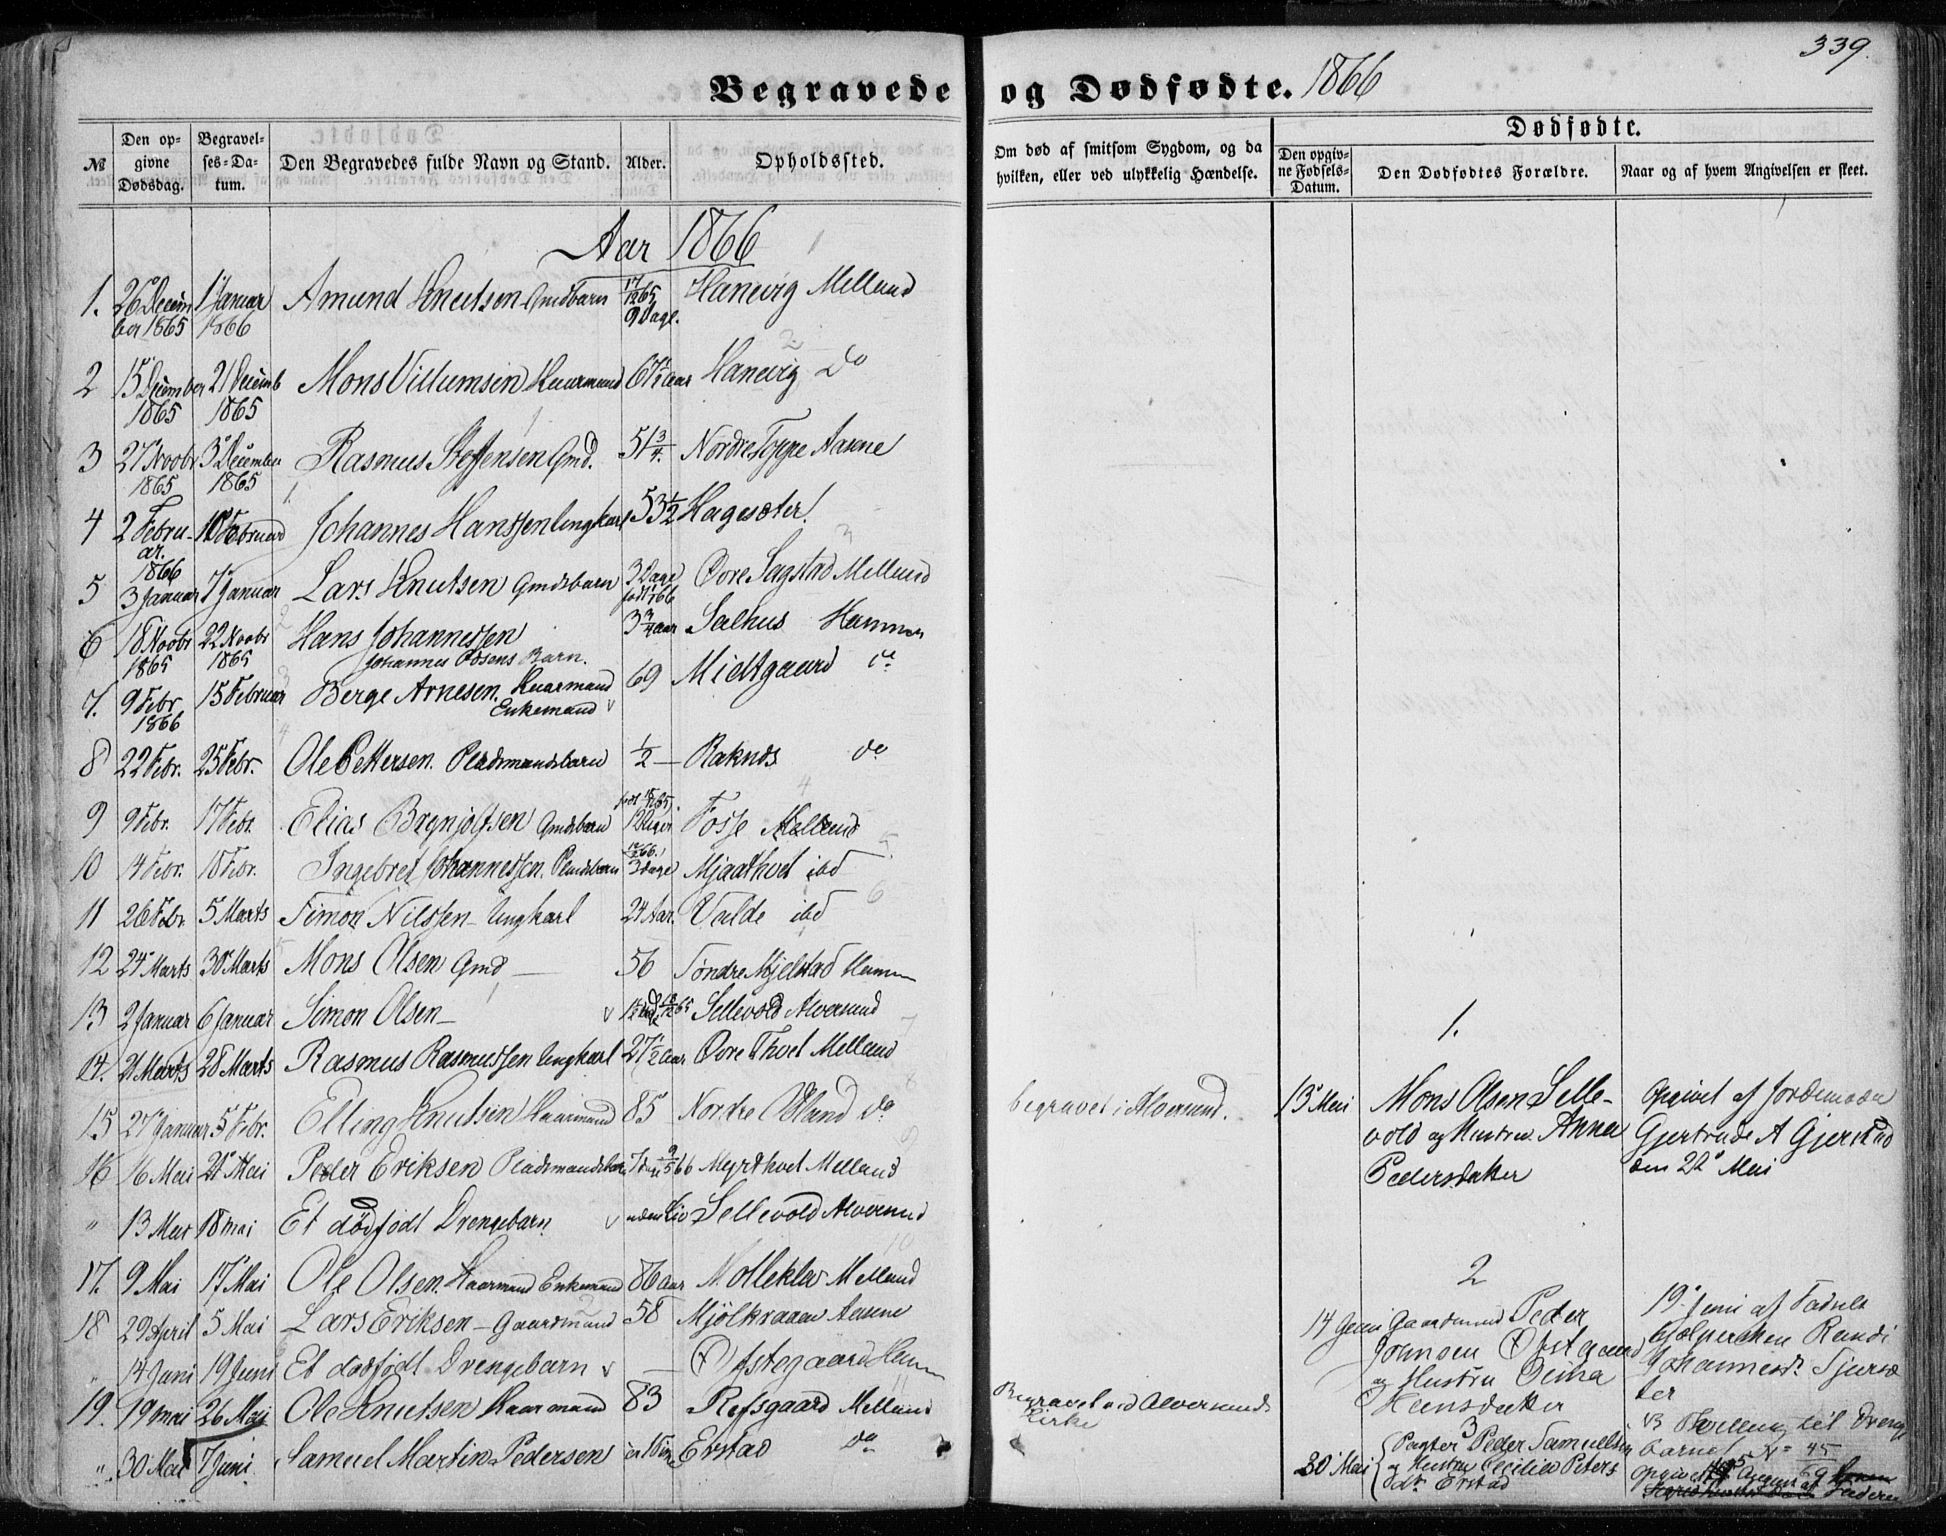 339.
Begravede og Dødfødte. 1866
Dødfødte.
№
Den opgivne Dødsdag.
Begravelses-Datum.
Den Begravedes fulde Navn og Stand.
Alder.
Opholdssted.
Om død af smitsom Sygdom, og da hvilken, eller ved ulykkelig Hændelse.
Den opgivne Fødsels-Datum.
Den Dødfødtes Forældre.
Naar og af hvem Angivelsen er skeet.
Aar 1866
1. 26 December 1865 1 Januar 1866 Amund Knutsen Gmdbarn 17/12 65 9 Dage. Hanevig Melland
2 15 December 1865 21 Decemb 1865 Mons Villumsen Kaarmand 67½ Aar Hanevig do
3 27 Novbr 1865 3 December 1865 Rasmus Steffensen Gmd. 51¾ Nordre Toppe Aasene
4 2 Februar. 1866 10 Februar Johannes Hanssen Ungkarl 53½ Hagesæter
5 3 Januar 7 Januar Lars Knutsen Gmdsbarn 3 Dage Øvre Sagstad Melland
6 18 Novbr 1865 22 Novbr 1865 Hans Johannessen
Johannes Barn. 3¾ aar Salhus Hammer
7. 9 Febr 1866 15 Februar Berge Arnesen. Kaarmand Enkemand 69 Midtgaard do
8 22 Febr. 25 Febr. Ole Pettersen. Pladsmandsbarn ½ — Raknæs do
9 9 Febr. 17 Febr. Elias Brynjolfsen Gmdsbarn 12 Uger Fosse Melland
10 14 Febr. 18 Febr. Ingebret Johannessen. 3 dage Mjaathvet ibd
11 26 Febr. 5 Marts Simon Nilssen Ungkarl 24 Aar. Valde ibd
12 24 Marts 30 Marts Mons Olsen Gmd — 56 Søndre Mjelstad
13 2 Januar 6 Januar Simon Olsen — Sellevold Alversund
14. 21 Marts 28 Marts Rasmus Rasmussen Ungkarl 27½ Aar Øvre Thvet Melland
15 27 Januar 5 Febr. Elling Knutsen Kaarmand 85 Nordre Ødland do begravet i Alversund.
16 16 Mai 21 Mai Peder Eriksen Myrthvet Melland
" 13 Mai 18 mai Et dødfødt Drengebarn uden Liv Sellevold Alversund
17. 9 Mai 17 Mai Ole Olsen. Kaarmand Enkemand 86 aar Molleklev Melland
18 29 April 5 Mai Lars Eriksen — Gaardmand 58 Mjølkraaen Aasene
" 14 Juni 19 Juni Et dødfødt Drengebarn — Øfstegaard
19. 19 mai 26 Mai Ole Knutsen Kaarmand 83 Refsgaard Melland Begravet ved Alversunds Kirke
" 30 Mai 7 Juni Samuel Martin Pedersen Evstad do
1.
13 Mai Mons Olsen Sellevold og Hustru Anna Pedersdatter
Opgivet af Jordemoder
Gjertrude A Gjerstad
den 22 Mai
2
14 Juni Gaardmand Peder
og Hustru
Hansdatter
19 Juni af
Johannesdt.
3
30 Mai Peder Samuelsen
og Hustru Cecilia Peters
dt. Evstad
Opgivet af Faderen